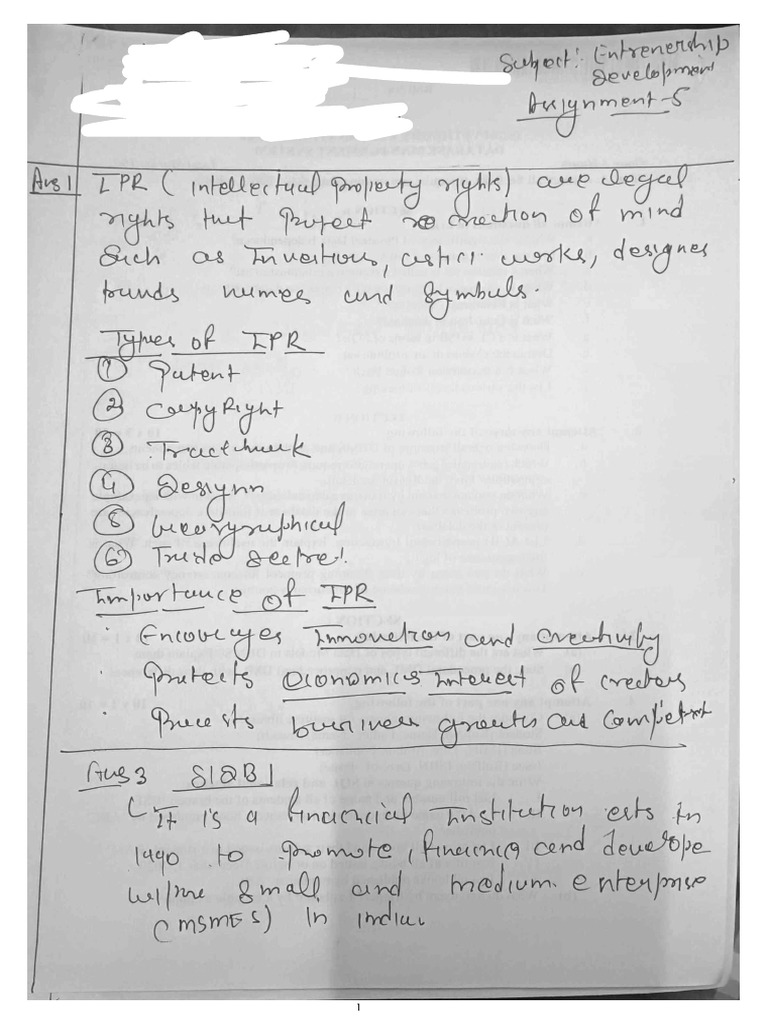 Subject: Entrenership
Development
Assignment-5
Ans 1 IPR (intellectual property rights) are legal
rights that protect creation of mind
Such as Inventions, artistic works, designes
trands names and Symbuls.
Types of IPR
① Patent
② Copyright
③ Tradmark
④ Designn
⑤ Geoargraphical
⑥ Trade Secret.
Importance of IPR
· Encourages Innovation and Creativity
· Protects economics interest of creators
· business growth and
Ans 3 SIDBI
It is a financial Institution ests in
1990 to promote, finance and develope
Small and medium enterprise
(MSMEs) in india.
1